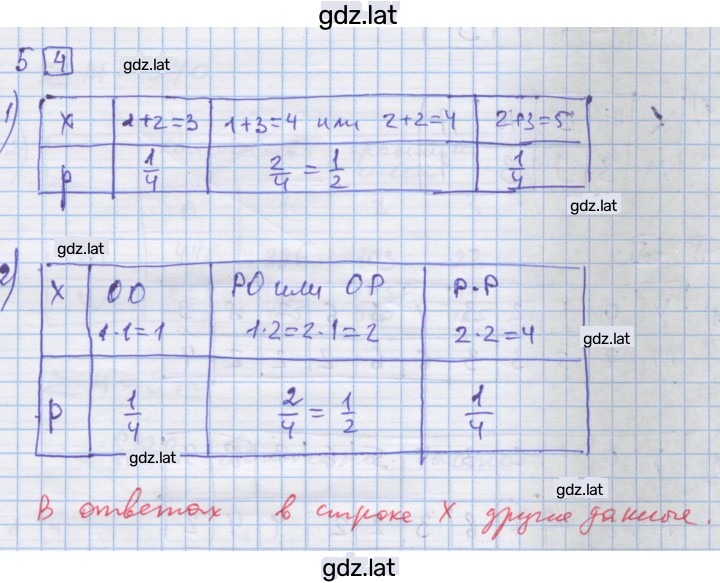 gdz.lat
5 4
gdz.lat
1)
X 1+2=3 1+3=4 или 2+2=4 2+3=5
p 1/4 2/4 = 1/2 1/4
gdz.lat
gdz.lat
2)
X OO PO или OP P·P
1·1=1 1·2=2·1=2 2·2=4
gdz.lat
p 1/4 2/4 = 1/2 1/4
gdz.lat
gdz.lat
В ответах в строке X другие данные.
gdz.lat